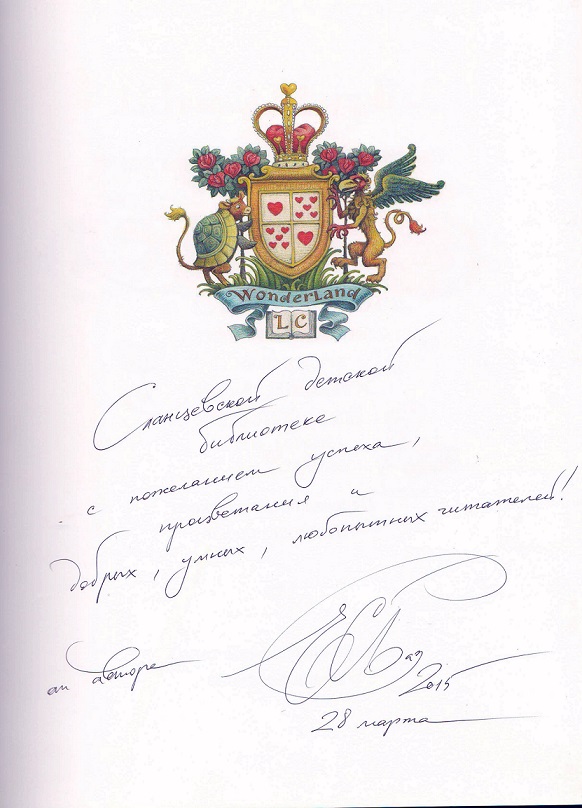 Wonderland
L C
Сланцевской детской
библиотеке
с пожеланием успеха,
процветания и
добрых, умных, любопытных читателей!
от автора
2015
28 марта